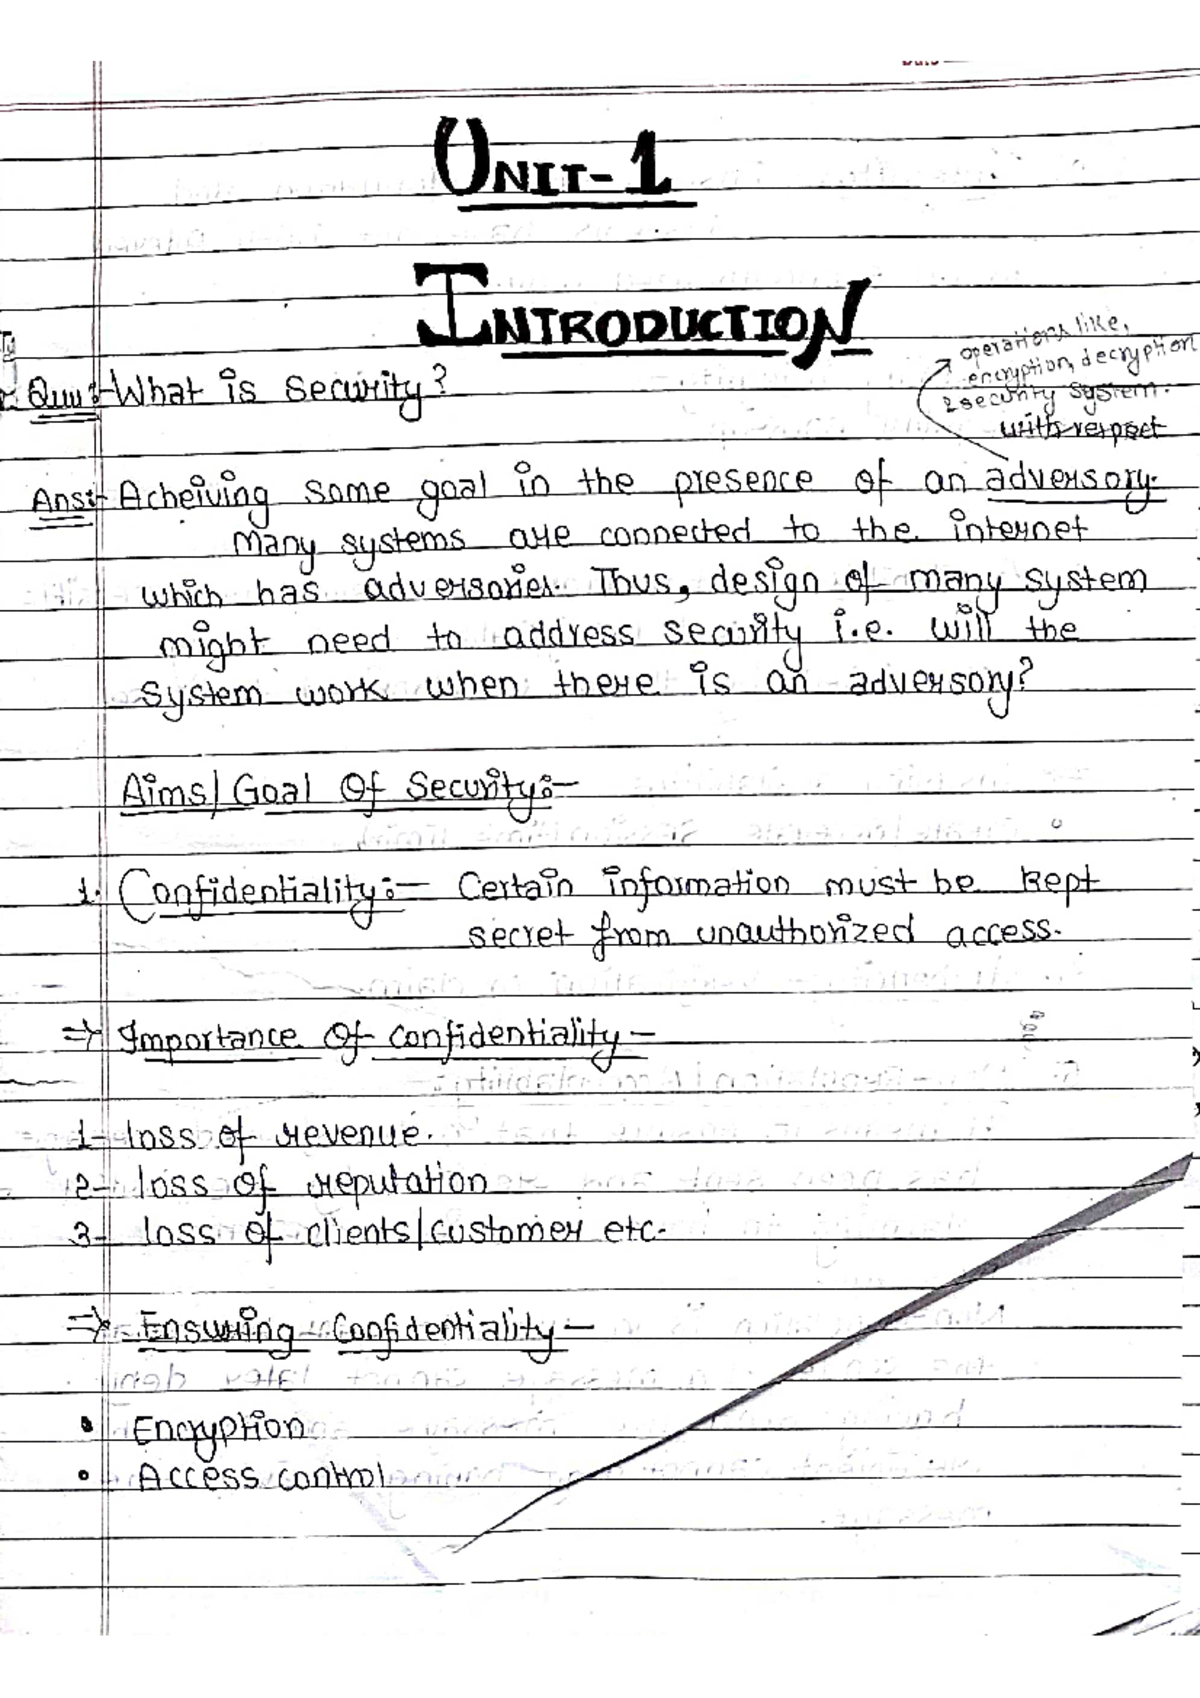 UNIT-1
INTRODUCTION
operations like,
encryption, decryption
& security system.
with respect
Que:- What is security?
Ans:- Acheiving some goal in the presence of an adversory.
Many systems are connected to the internet
which has adversories. Thus, design of many system
might need to address security i.e. will the
system work when there is an adversory?
Aims/Goal Of Security:-
1. Confidentiality:- Certain information must be kept
secret from unauthorized access.
=> Importance Of Confidentiality-
1- loss of revenue.
2- loss of reputation
3- loss of clients/customer etc.
=> Ensuring Confidentiality-
• Encryption
• Access control